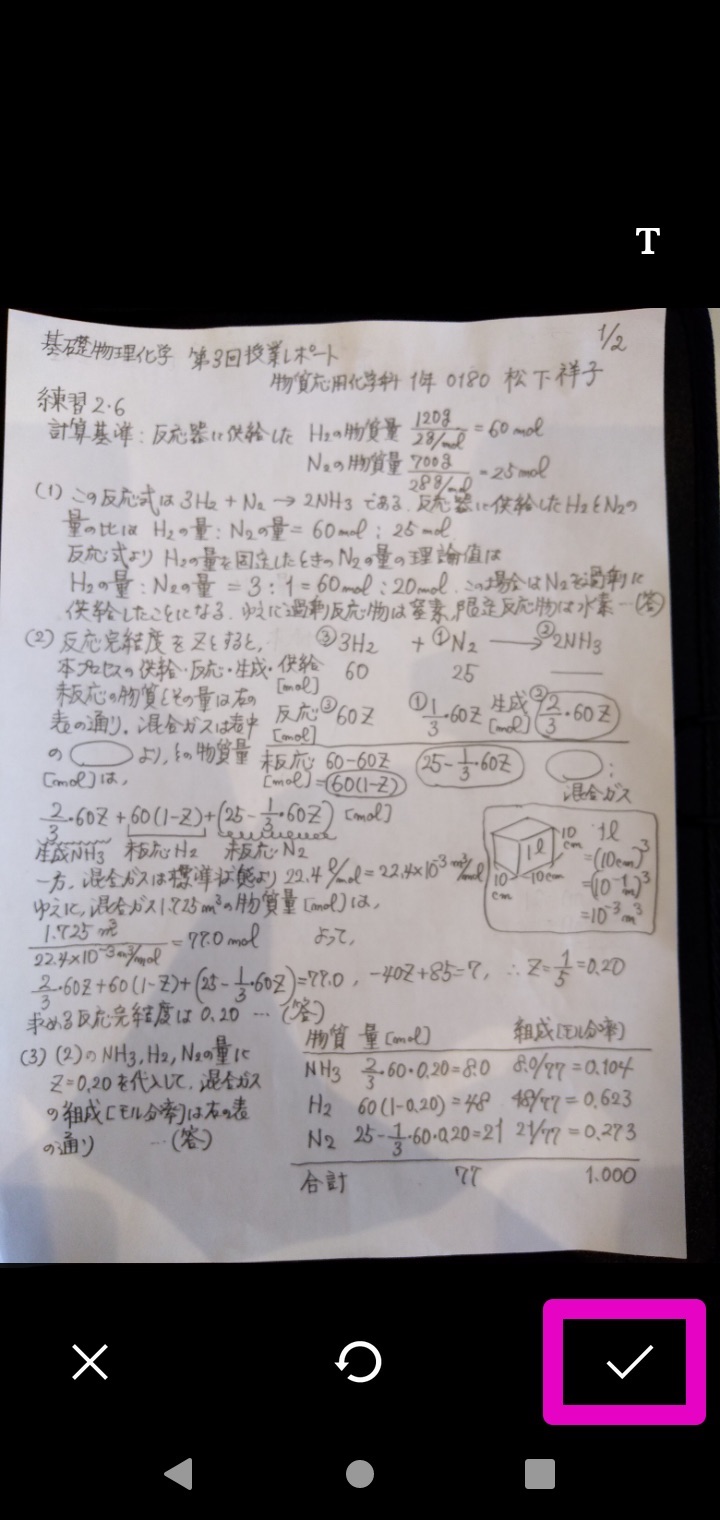 T
1/2
基礎物理化学 第3回授業レポート
物質応用化学科 1年 0180 松下祥子
練習2.6
計算基準:反応器に供給した H2の物質量 120g/2g/mol = 60 mol
N2の物質量 700g/28g/mol = 25 mol
(1) この反応式は 3H2 + N2 → 2NH3 である. 反応器に供給したH2とN2の
量の比は H2の量:N2の量 = 60 mol : 25 mol
反応式より H2の量を固定したときのN2の量の理論値は
H2の量:N2の量 = 3:1 = 60 mol : 20 mol. この場合はN2を過剰に
供給したことになる. ゆえに過剰反応物は窒素, 限定反応物は水素…(答)
(2) 反応完結度をZとすると, ③3H2 + ①N2 → ②2NH3
本プロセスの供給・反応・生成・ 供給[mol] 60 25 —
未反応の物質とその量は右の
表の通り. 混合ガスは表中 反応[mol] ③60Z ①1/3・60Z 生成[mol] ②2/3・60Z
の より, その物質量 未反応[mol] 60-60Z =60(1-Z) 25-1/3・60Z :混合ガス
[mol]は,
2/3・60Z + 60(1-Z) + (25-1/3・60Z) [mol]
生成NH3 未反応H2 未反応N2
10cm 10cm 10cm 1ℓ
1ℓ
=(10cm)³
=(10⁻¹m)³
=10⁻³m³
一方, 混合ガスは標準状態より 22.4ℓ/mol = 22.4×10⁻³m³/mol
ゆえに, 混合ガス1.725m³の物質量[mol]は,
1.725 m³/22.4×10⁻³m³/mol = 77.0 mol よって,
2/3・60Z+60(1-Z)+(25-1/3・60Z)=77.0, -40Z+85=7, ∴Z=1/5=0.20
求める反応完結度は 0.20 …(答)
(3) (2)のNH3, H2, N2の量に
Z=0.20を代入して, 混合ガス
の組成[モル分率]は右の表
の通り …(答)
物質 量[mol] 組成[モル分率]
NH3 2/3・60・0.20=8.0 8.0/77=0.104
H2 60(1-0.20)=48 48/77=0.623
N2 25-1/3・60・0.20=21 21/77=0.273
合計 77 1.000